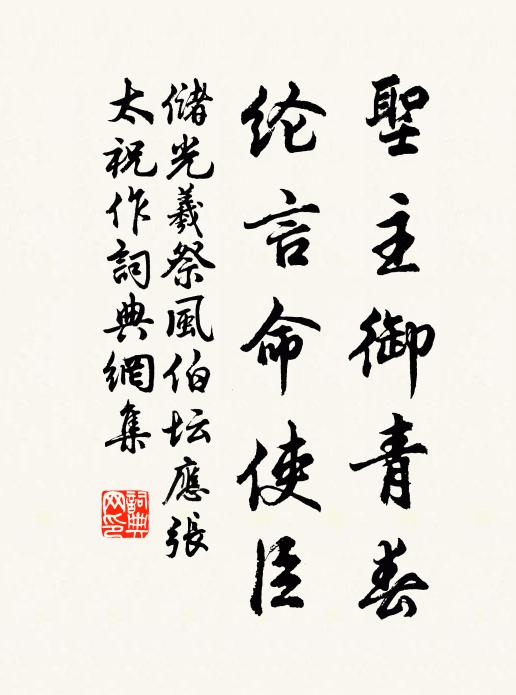 聖主御青春
纶言命使臣
儲光羲祭風伯坛應張
太祝作詞典網集
詞典网印